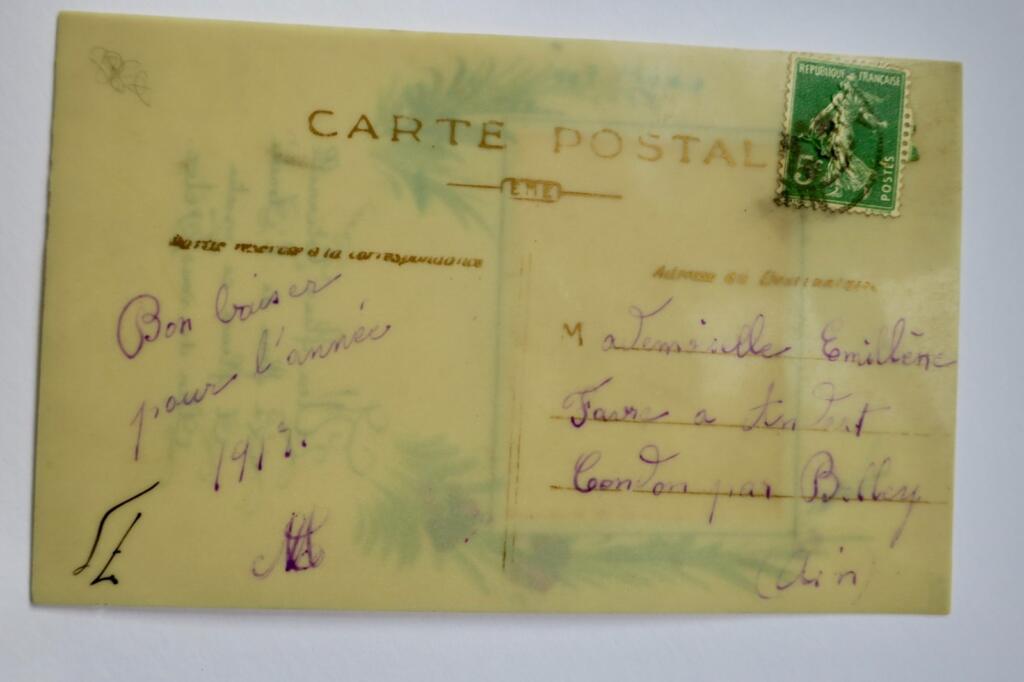 CARTE POSTAL
EME
REPUBLIQUE FRANÇAISE
5c
POSTES
Partie réservée à la correspondance
Adresse du Destinataire
Bon baiser
pour l'année
1913.
Mademoiselle Emillène
Favre a
Condon par Belley
(Ain)